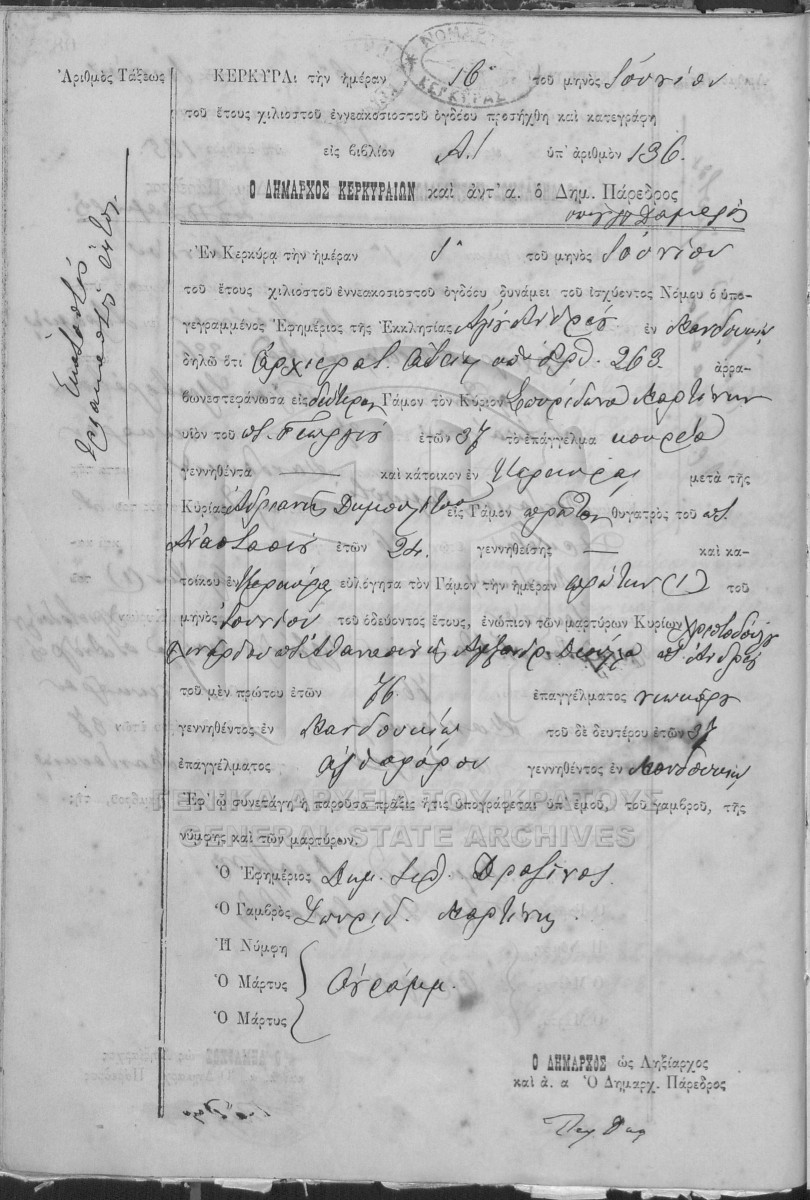 ΝΟΜΑΡΧ
ΚΕΡΚΥΡΑΣ
Ἀριθμὸς Τάξεως
Ἑκατοστὸς
τριακοστὸς ἕκτος
ΚΕΡΚΥΡΑ: τὴν ἡμέραν 16 τοῦ μηνὸς Ἰουνίου
τοῦ ἔτους χιλιοστοῦ ἐννεακοσιοστοῦ ὀγδόου προσήχθη καὶ κατεγράφη
εἰς βιβλίον Α/ ὑπ' ἀριθμὸν 136.
Ο ΔΗΜΑΡΧΟΣ ΚΕΡΚΥΡΑΙΩΝ καὶ ἀντ' α. ὁ Δημ. Πάρεδρος
Ἐν Κερκύρᾳ τὴν ἡμέραν 1ῃ τοῦ μηνὸς Ἰουνίου
τοῦ ἔτους χιλιοστοῦ ἐννεακοσιοστοῦ ὀγδόου δυνάμει τοῦ ἰσχύοντος Νόμου ὁ ὑπο-
γεγραμμένος Ἐφημέριος τῆς Ἐκκλησίας Ἁγίου Ἀνδρέου ἐν Μανδουκίῳ
δηλῶ ὅτι Ἀρχιερατ. Ἀδείᾳ ὑπ' Ἀρθ. 263 ἀρρα-
βωνεστεφάνωσα εἰς δεύτερον Γάμον τὸν Κύριον Σπυρίδωνα Μαρτίνην
υἱὸν τοῦ ποτ. Γεωργίου ἐτῶν 37 τὸ ἐπάγγελμα κουρέα
γεννηθέντα — καὶ κάτοικον ἐν Κερκύρᾳ μετὰ τῆς
Κυρίας Ἀνδριανῆς εἰς Γάμον πρῶτον θυγατρὸς τοῦ ποτ.
Ἀναστασίου ἐτῶν 24. γεννηθείσης — καὶ κα-
τοίκου ἐν Κερκύρᾳ εὐλόγησα τὸν Γάμον τὴν ἡμέραν πρώτην (1) τοῦ
μηνὸς Ἰουνίου τοῦ ὁδεύοντος ἔτους, ἐνώπιον τῶν μαρτύρων Κυρίων Χριστοδούλου
ποτ. Ἀθανασίου καὶ Ἀλεξάνδρ. ποτ. Ἀνδρέου
τοῦ μὲν πρώτου ἐτῶν 76. ἐπαγγέλματος
γεννηθέντος ἐν Μανδουκίῳ τοῦ δὲ δευτέρου ἐτῶν 37
ἐπαγγέλματος ἀχθοφόρου γεννηθέντος ἐν Μανδουκίῳ
Ἐφ' ᾧ συνετάγη ἡ παροῦσα πρᾶξις ἥτις ὑπογράφεται ὑπ' ἐμοῦ, τοῦ γαμβροῦ, τῆς
νύμφης καὶ τῶν μαρτύρων.
ΓΕΝΙΚΑ ΑΡΧΕΙΑ ΤΟΥ ΚΡΑΤΟΥΣ
GENERAL STATE ARCHIVES
Ὁ Ἐφημέριος
Ὁ Γαμβρὸς Σπυρίδ. Μαρτίνης
Ἡ Νύμφη
Ὁ Μάρτυς Ἀγράμμ.
Ὁ Μάρτυς
Ο ΔΗΜΑΡΧΟΣ ὡς Ληξίαρχος
καὶ ἀ. α Ὁ Δημαρχ. Πάρεδρος